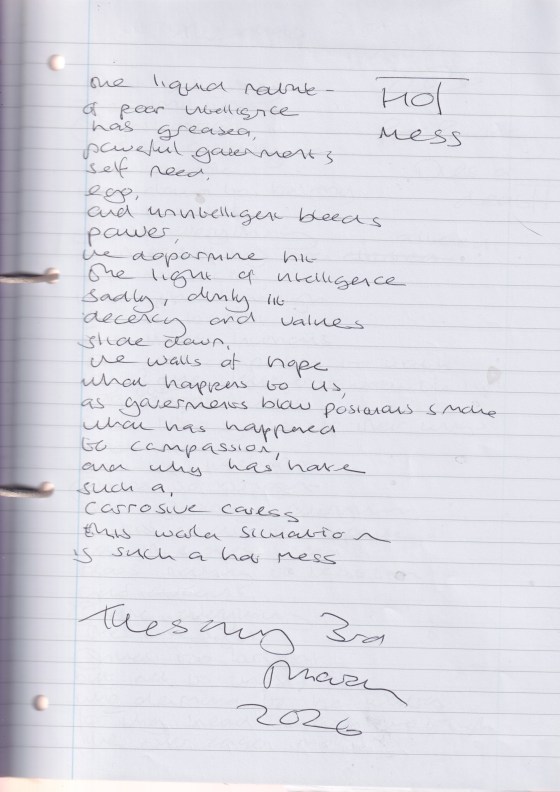 HOT
MESS
the liquid nature -
of poor intelligence
has greased,
powerful goverments
self need,
ego,
and unintelligent bleeds
power,
the dopormine hit
the light of intelligence
sadly, dimly lit
decency and values
slide down,
the walls of hope
what happens to us,
as goverments blow posionous smoke
what has happened
to compassion,
and why has hate
such a,
corrosive caress
this world situation
is such a hot mess
Tuesday 3rd
March
2026